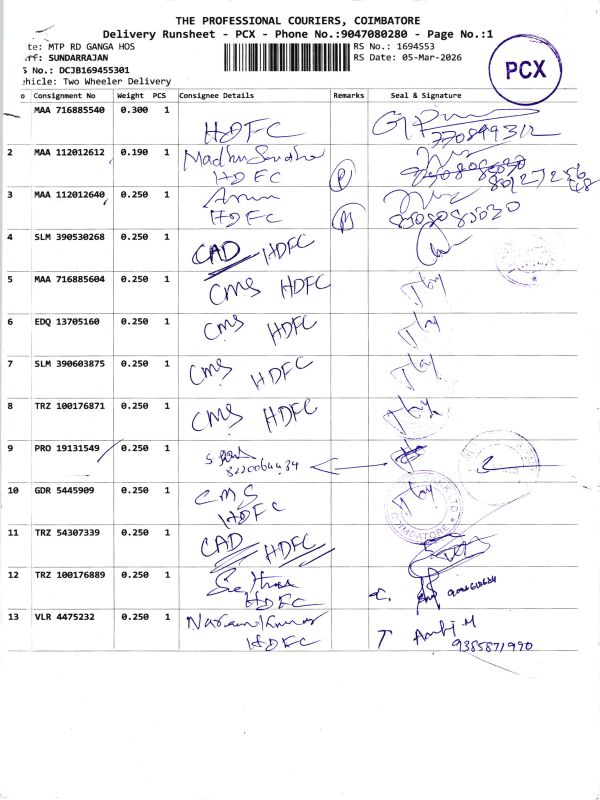 THE PROFESSIONAL COURIERS, COIMBATORE
Delivery Runsheet - PCX - Phone No.:9047080280 - Page No.:1
te: MTP RD GANGA HOS
RS No.: 1694553
ff: SUNDARRAJAN
RS Date: 05-Mar-2026
S No.: DCJB169455301
ehicle: Two Wheeler Delivery
PCX
o Consignment No Weight PCS Consignee Details Remarks Seal & Signature
MAA 716885540 0.300 1 HDFC
2 MAA 112012612 0.190 1
HDFC
3 MAA 112012640 0.250 1 Arun
HDFC
4 SLM 390530268 0.250 1 CAD HDFC
5 MAA 716885604 0.250 1 CMS HDFC
6 EDQ 13705160 0.250 1 CMS HDFC
7 SLM 390603875 0.250 1 CMS HDFC
8 TRZ 100176871 0.250 1 CMS HDFC
9 PRO 19131549 0.250 1
10 GDR 5445909 0.250 1 CMS
HDFC
COIMBATORE
11 TRZ 54307339 0.250 1 CAD HDFC
12 TRZ 100176889 0.250 1
HDFC
13 VLR 4475232 0.250 1
HDFC
9385871990